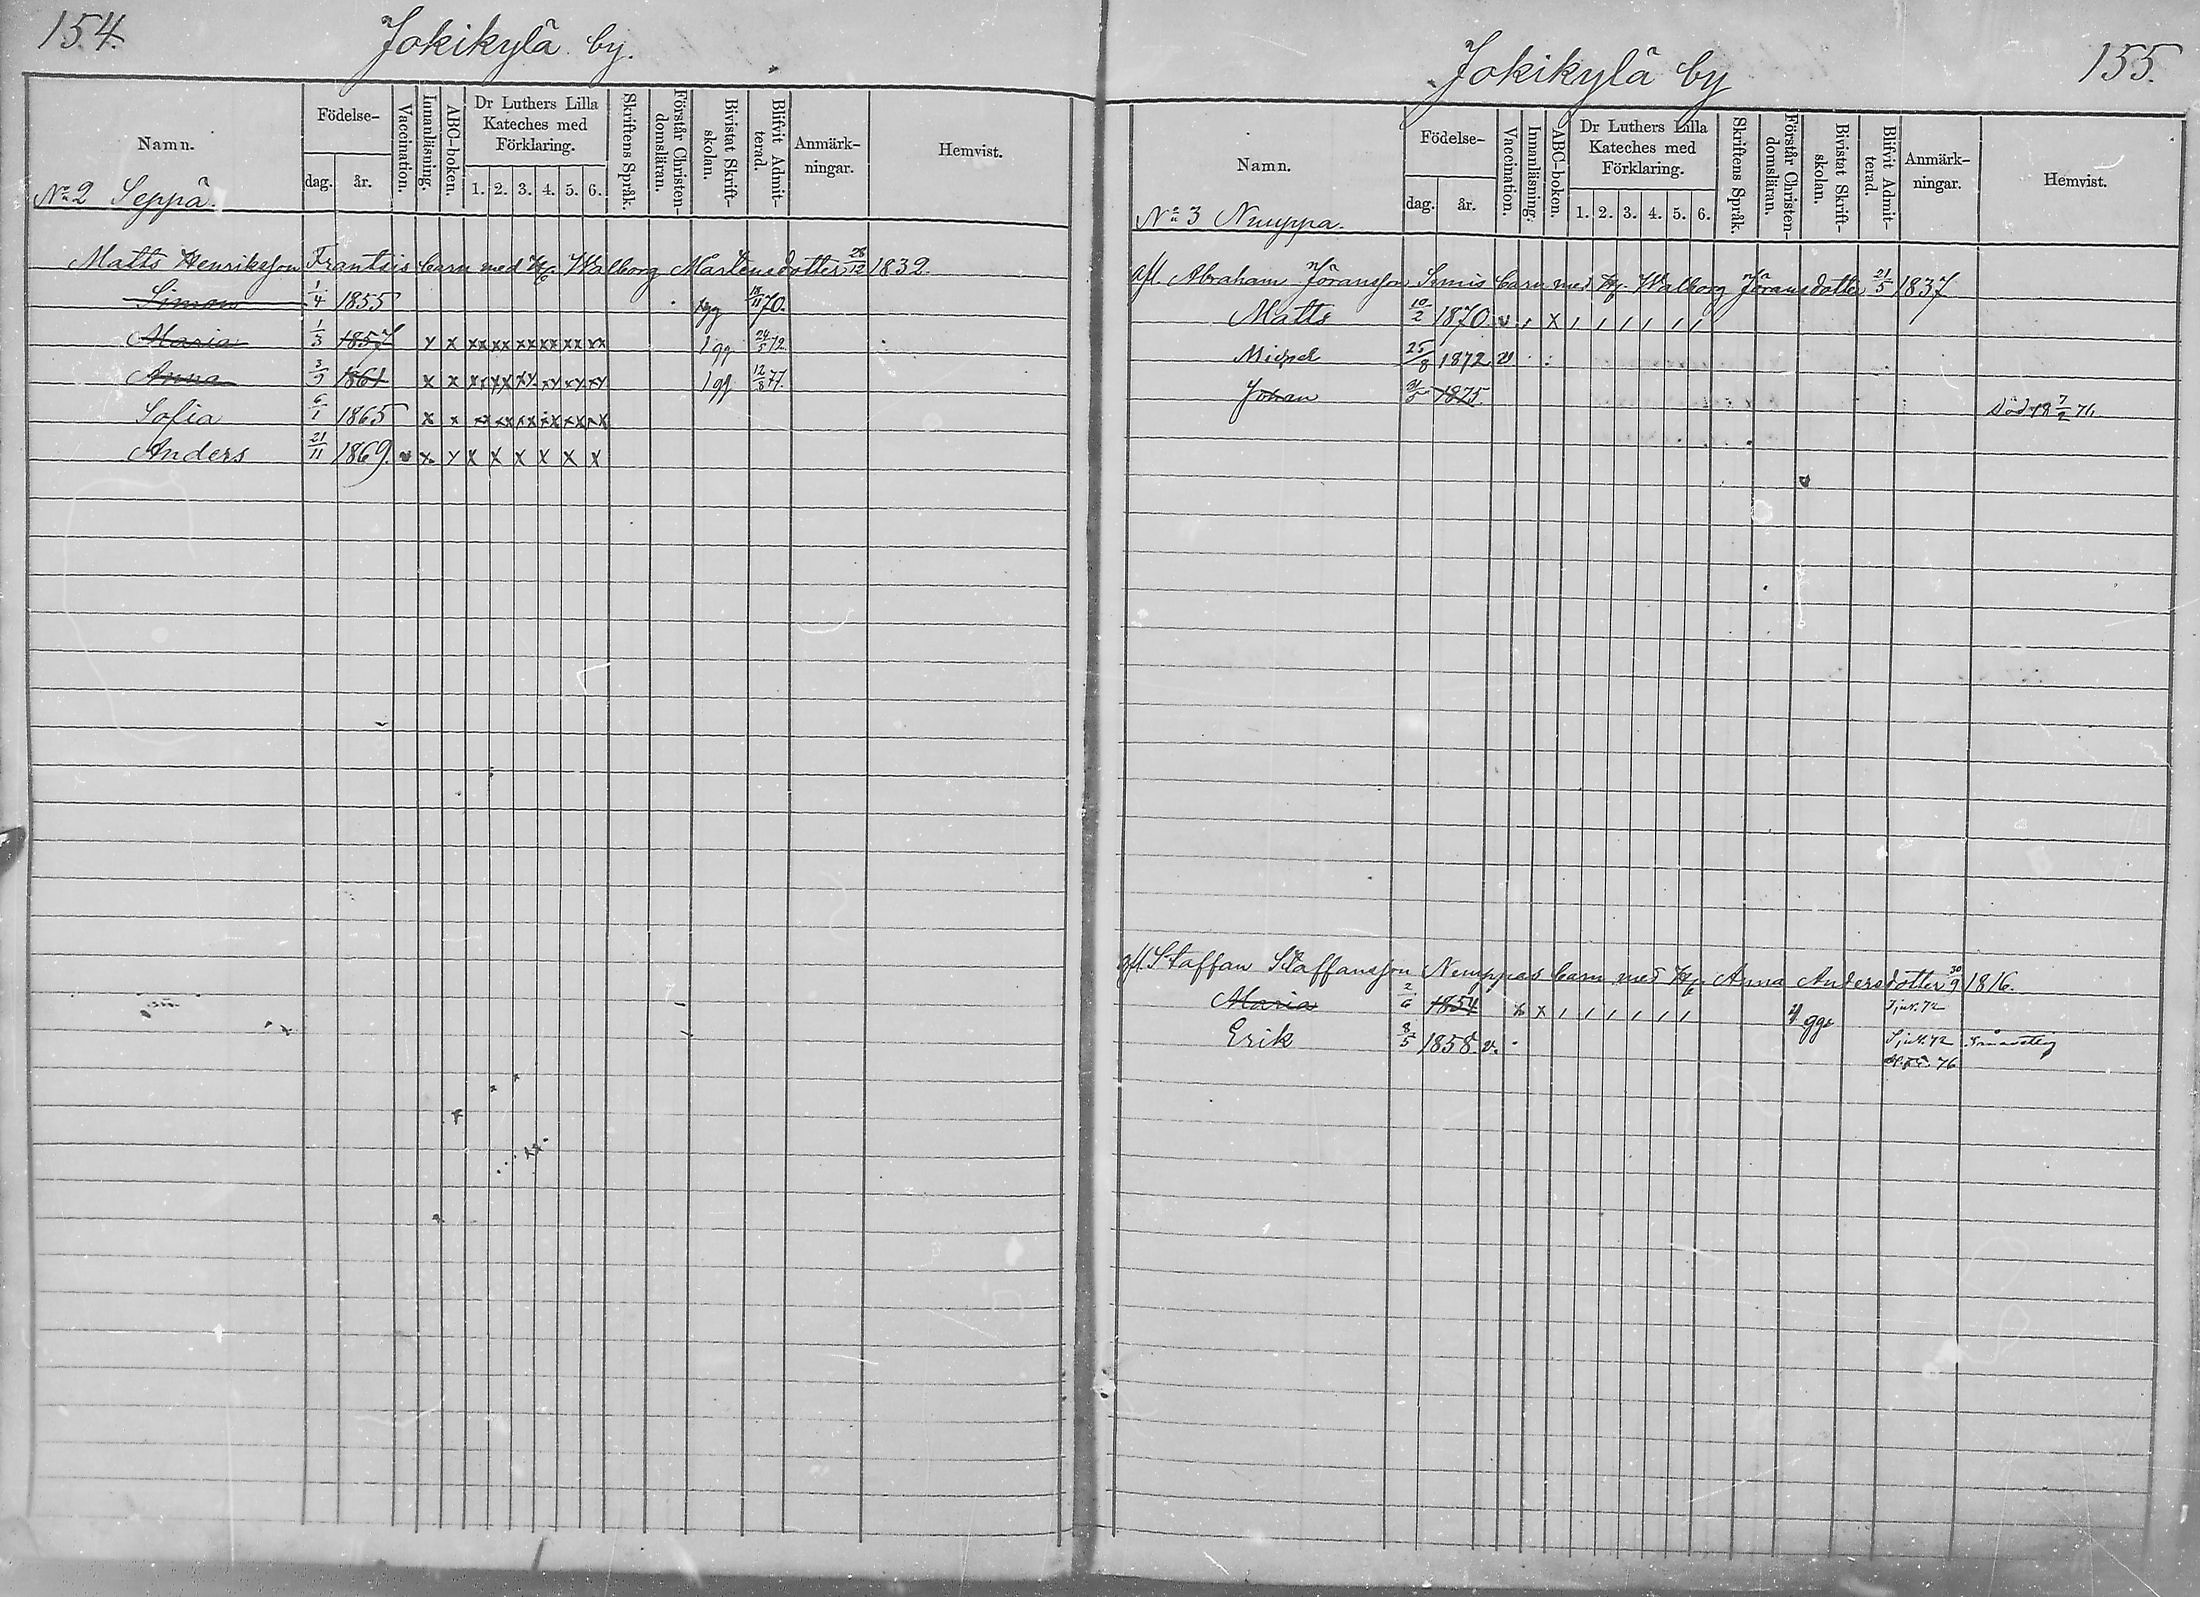 154.
Jokikylä by.
Namn.
Födelse-
dag.
år.
Vaccination.
Innanläsning.
ABC-boken.
Dr Luthers Lilla
Kateches med
Förklaring.
1. 2. 3. 4. 5. 6.
Skriftens Språk.
Förstår Christen-
domsläran.
Bivistat Skrift-
skolan.
Blifvit Admit-
terad.
Anmärk-
ningar.
Hemvist.
No 2 Seppä.
Matts Henriksson Frantsis barn med Walborg Mårtensdotter 28/12 1832.
Simon 1/4 1855 18/11 70.
Maria 1/3 1857 x x xx xx xx xx xx xx 1 gg 24/5 72
Anna 3/9 1861 x x xx xx xx xx xx xx 1 gg 12/8 77.
Sofia 6/1 1865 x x xx xx xx xx xx xx
Anders 21/11 1869. v x x x x x x x x
155.
Jokikylä by
Namn.
Födelse-
dag.
år.
Vaccination.
Innanläsning.
ABC-bokon.
Dr Luthers Lilla
Kateches med
Förklaring.
1. 2. 3. 4. 5. 6.
Skriftens Språk.
Förstår Christen-
domsläran.
Bivistat Skrift-
skolan.
Blifvit Admit-
terad.
Anmärk-
ningar.
Hemvist.
No 3 Nuuppa.
Afl. Abraham Jöransson barn med Walborg Jöransdotter 21/5 1837
Matts 10/2 1870 v , x , , , , , ,
Michel 25/8 1872 v
Johan 1875. Död 18 7/2 76.
afl. Staffan Staffansson Nuuppas barn med Anna Andersdotter 30/9 1816.
Maria 2/6 1854 x x , , , , , , 4 gge
Erik 8/5 1858 v.